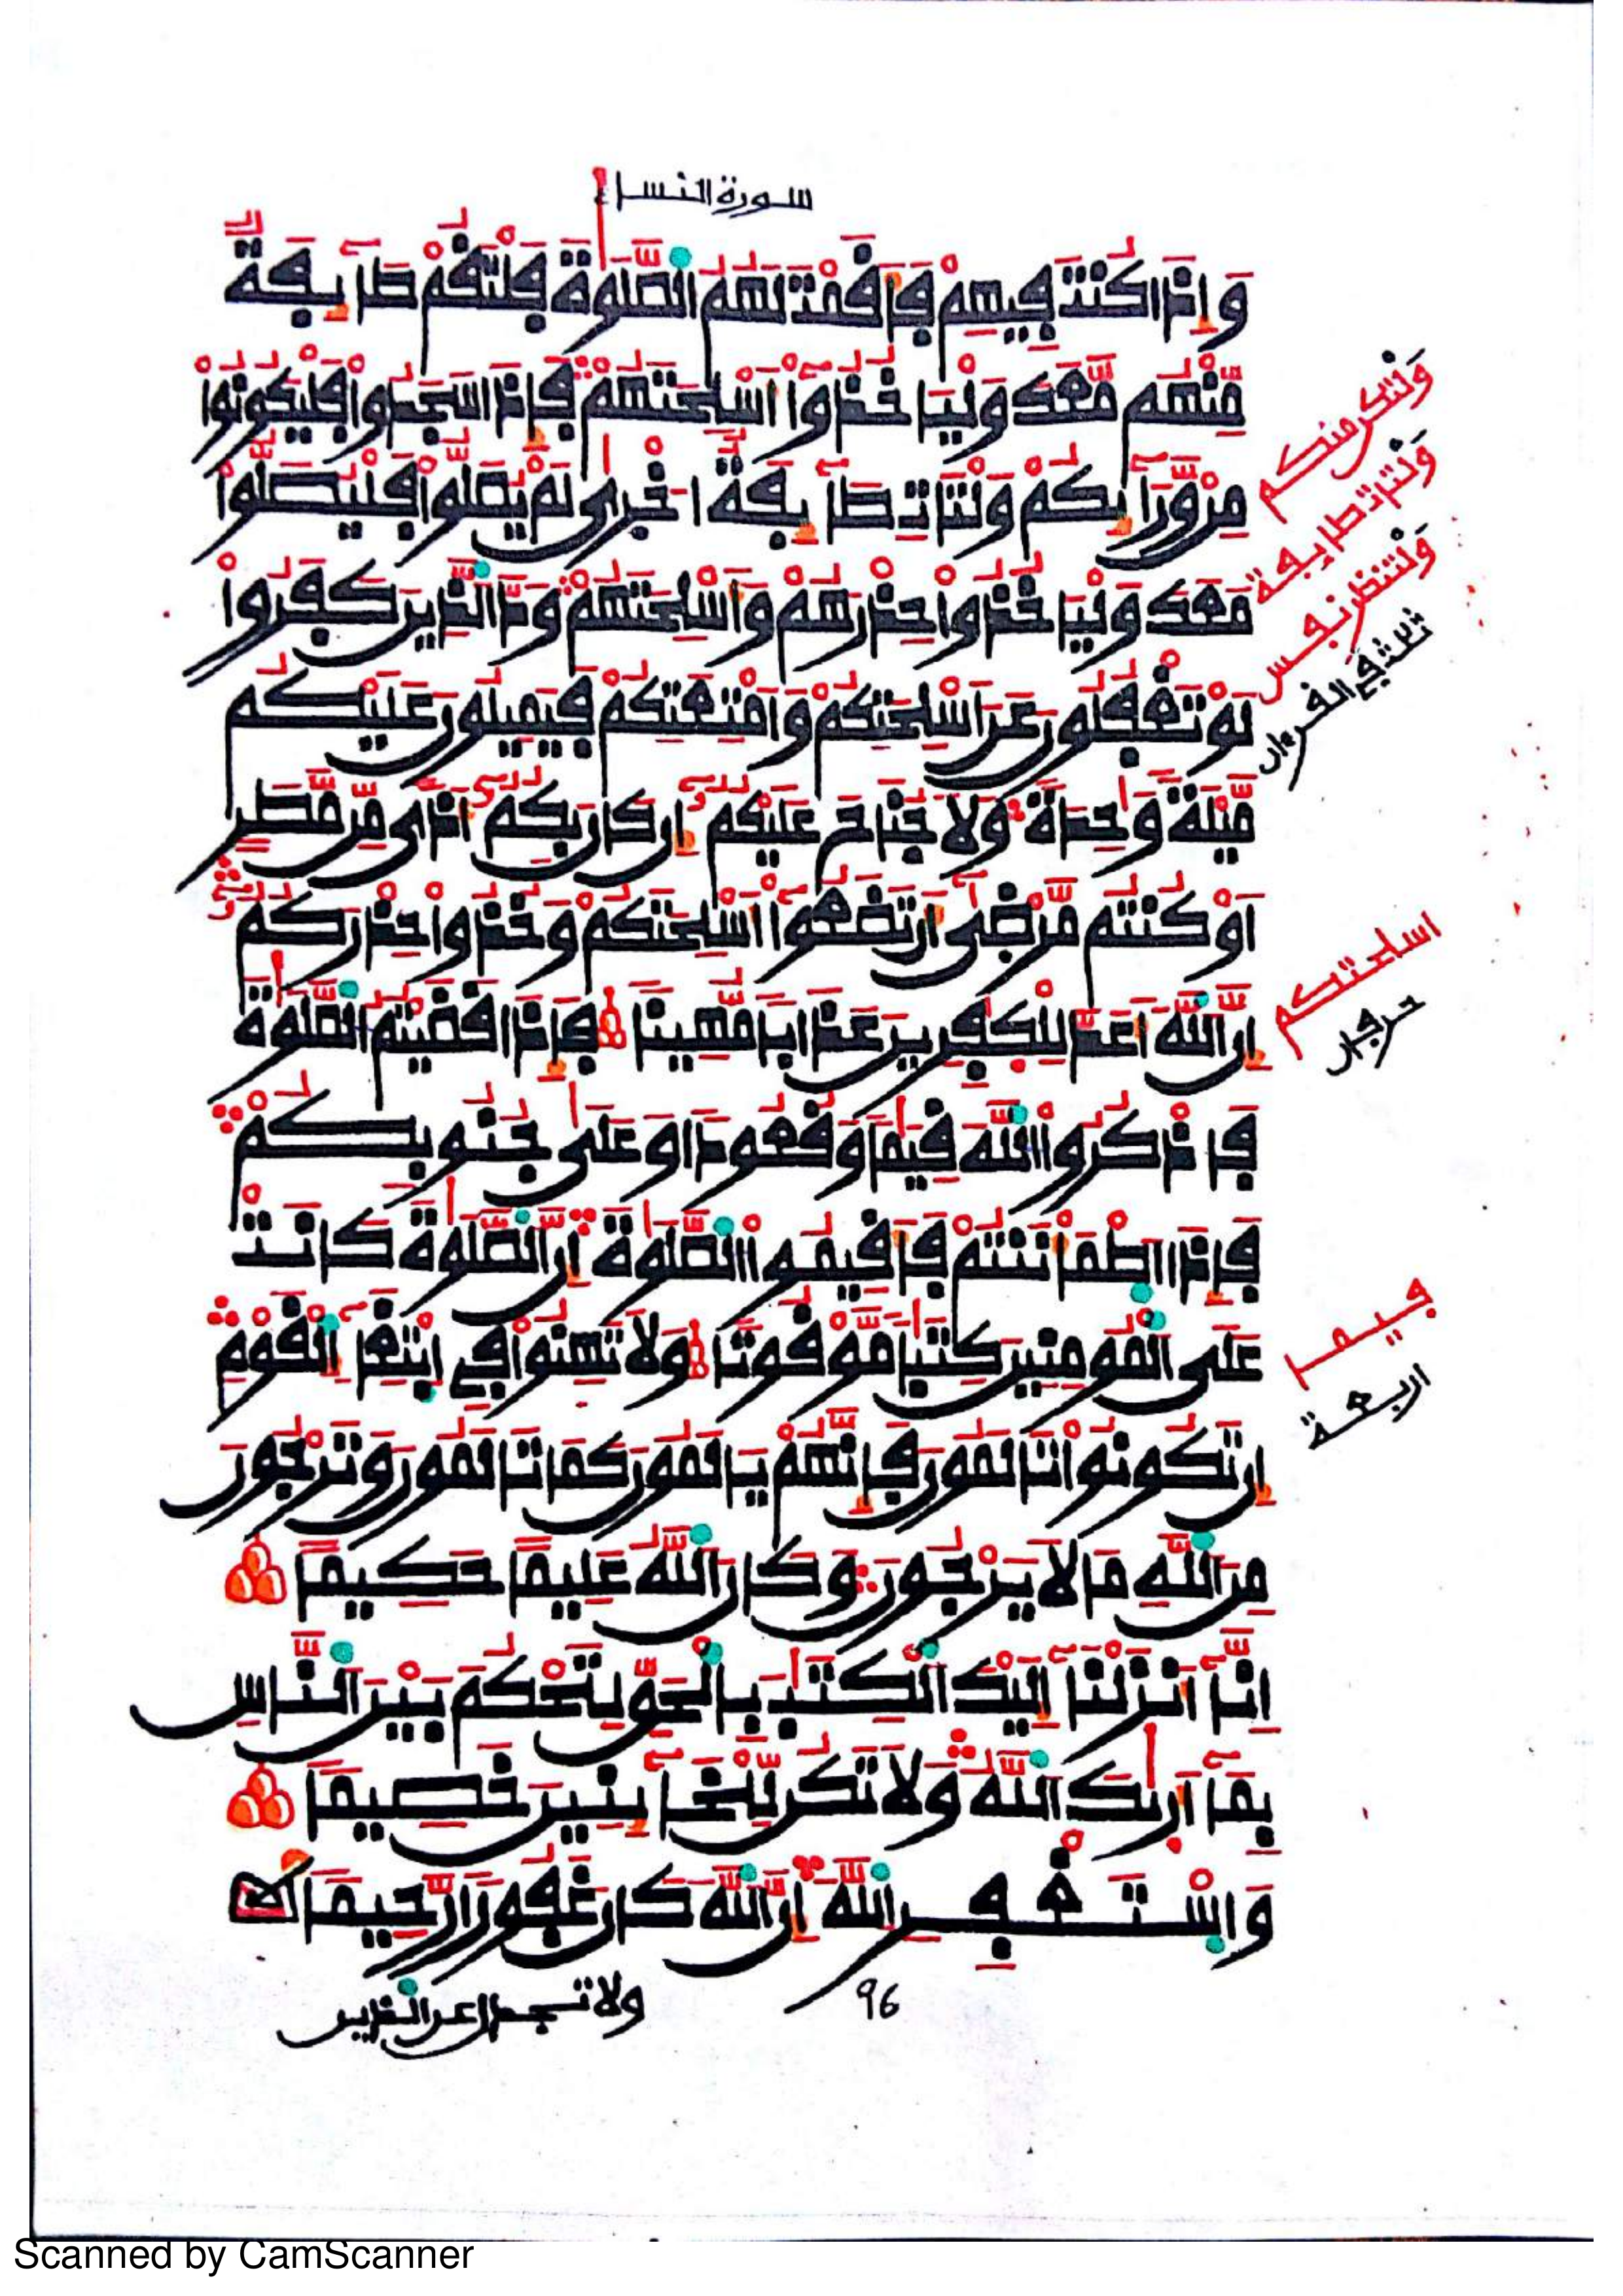 سورة النساء
وَإِذَا كُنتَ فِيهِمْ فَأَقَمْتَ لَهُمُ الصَّلَوٰةَ فَلْتَقُمْ طَآئِفَةٌ
مِّنْهُم مَّعَكَ وَلْيَاخُذُوٓا أَسْلِحَتَهُمْ فَإِذَا سَجَدُوا فَلْيَكُونُوا
مِنْ وَّرَآئِكُمْ وَلْتَاتِ طَآئِفَةٌ اُخْرٜىٰ لَمْ يُصَلُّوا فَلْيُصَلُّوا
مَعَكَ وَلْيَاخُذُوا حِذْرَهُمْ وَأَسْلِحَتَهُمْ وَدَّ الَّذِينَ كَفَرُوا
لَوْ تَغْفُلُونَ عَنَ اَسْلِحَتِكُمْ وَأَمْتِعَتِكُمْ فَيَمِيلُونَ عَلَيْكُم
مَّيْلَةً وَٰحِدَةً وَلَا جُنَاحَ عَلَيْكُمُۥٓ إِن كَانَ بِكُمُۥٓ أَذًى مِّن مَّطَرٍ
اَوْ كُنتُم مَّرْضَىٰٓ أَن تَضَعُوٓا أَسْلِحَتَكُمْ وَخُذُوا حِذْرَكُمُۥٓ
إِنَّ اللَّهَ أَعَدَّ لِلْكٰفِرِينَ عَذَابًا مُّهِينًا فَإِذَا قَضَيْتُمُ الصَّلَوٰةَ
فَاذْكُرُوا اللَّهَ قِيَٰمًا وَقُعُودًا وَعَلَىٰ جُنُوبِكُمْ
فَإِذَا اَطْمَأْنَنتُمْ فَأَقِيمُوا الصَّلَوٰةَ إِنَّ الصَّلَوٰةَ كَانَتْ
عَلَى الْمُومِنِينَ كِتَٰبًا مَّوْقُوتًا وَلَا تَهِنُوا فِي اِبْتِغَآءِ الْقَوْمِ
إِن تَكُونُوا تَالَمُونَ فَإِنَّهُمْ يَالَمُونَ كَمَا تَالَمُونَ وَتَرْجُونَ
مِنَ اللَّهِ مَا لَا يَرْجُونَ وَكَانَ اللَّهُ عَلِيمًا حَكِيمًا
اِنَّآ أَنزَلْنَآ إِلَيْكَ الْكِتَٰبَ بِالْحَقِّ لِتَحْكُمَ بَيْنَ النَّاسِ
بِمَآ أَرٜىٰكَ اللَّهُ وَلَا تَكُن لِّلْخَآئِنِينَ خَصِيمًا
وَاسْتَغْفِرِ اللَّهَ إِنَّ اللَّهَ كَانَ غَفُورًا رَّحِيمًا
ولا تجدل عن الذين
96
ولتكن منكم
ولتات طايفة
ولتنظر نفس
ثلثة في القرءان
اسلحتكم
حرفان
فيما
اربعة
Scanned by CamScanner